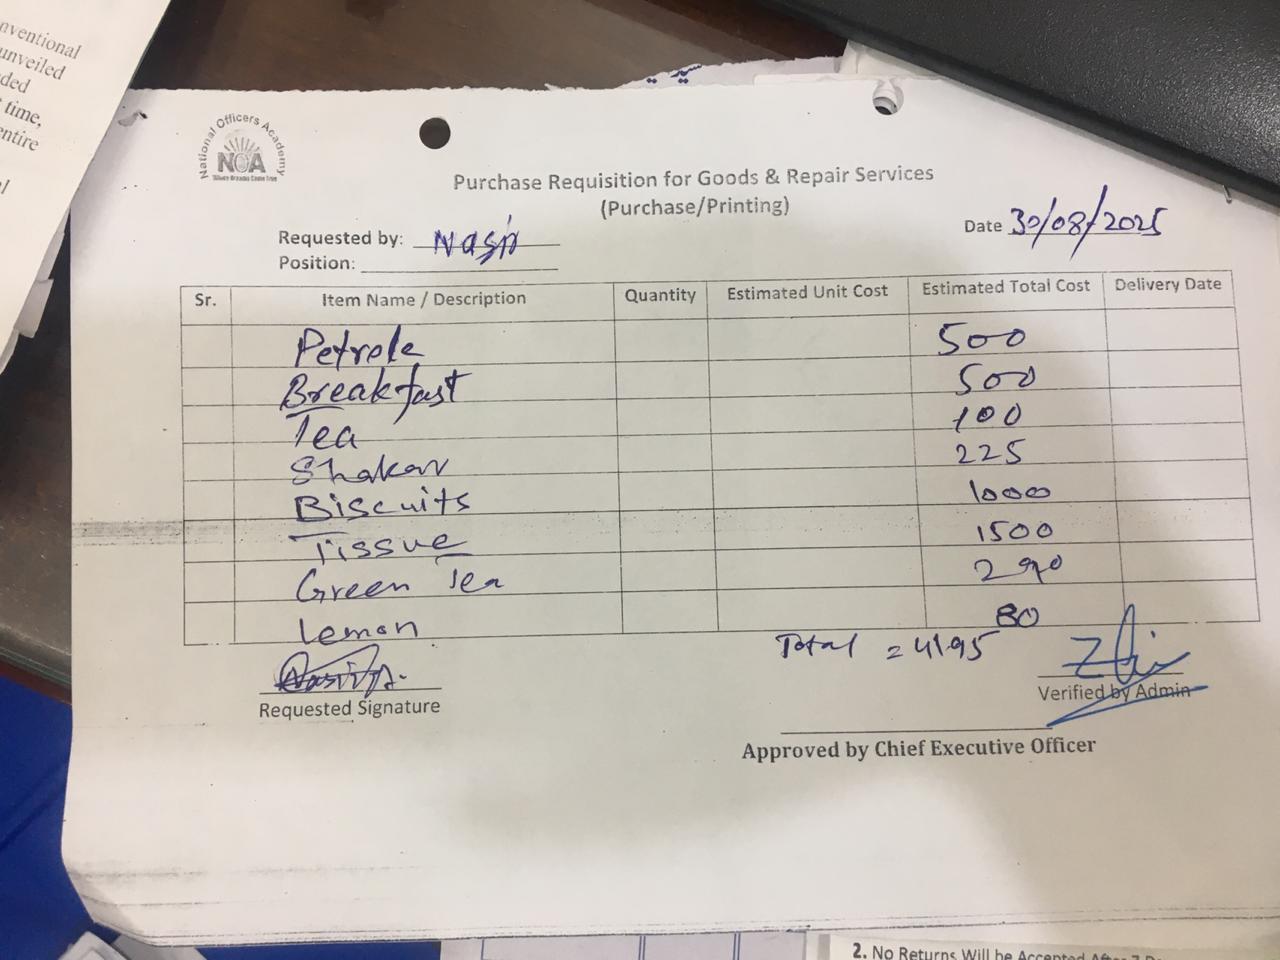 nventional
unveiled
ded
time,
entire
National Officers Academy
NOA
Where Dreams Come True
Purchase Requisition for Goods & Repair Services
(Purchase/Printing)
Requested by: Nasir
Date 30/08/2025
Position:
Sr. Item Name / Description Quantity Estimated Unit Cost Estimated Total Cost Delivery Date
Petrole 500
Breakfast 500
Tea 100
Shakar 225
Biscuits 1000
Tissue 1500
Green Tea 290
Lemon 80
Total = 4195
Requested Signature
Verified by Admin
Approved by Chief Executive Officer
2. No Returns Will be Accepted After 7 D